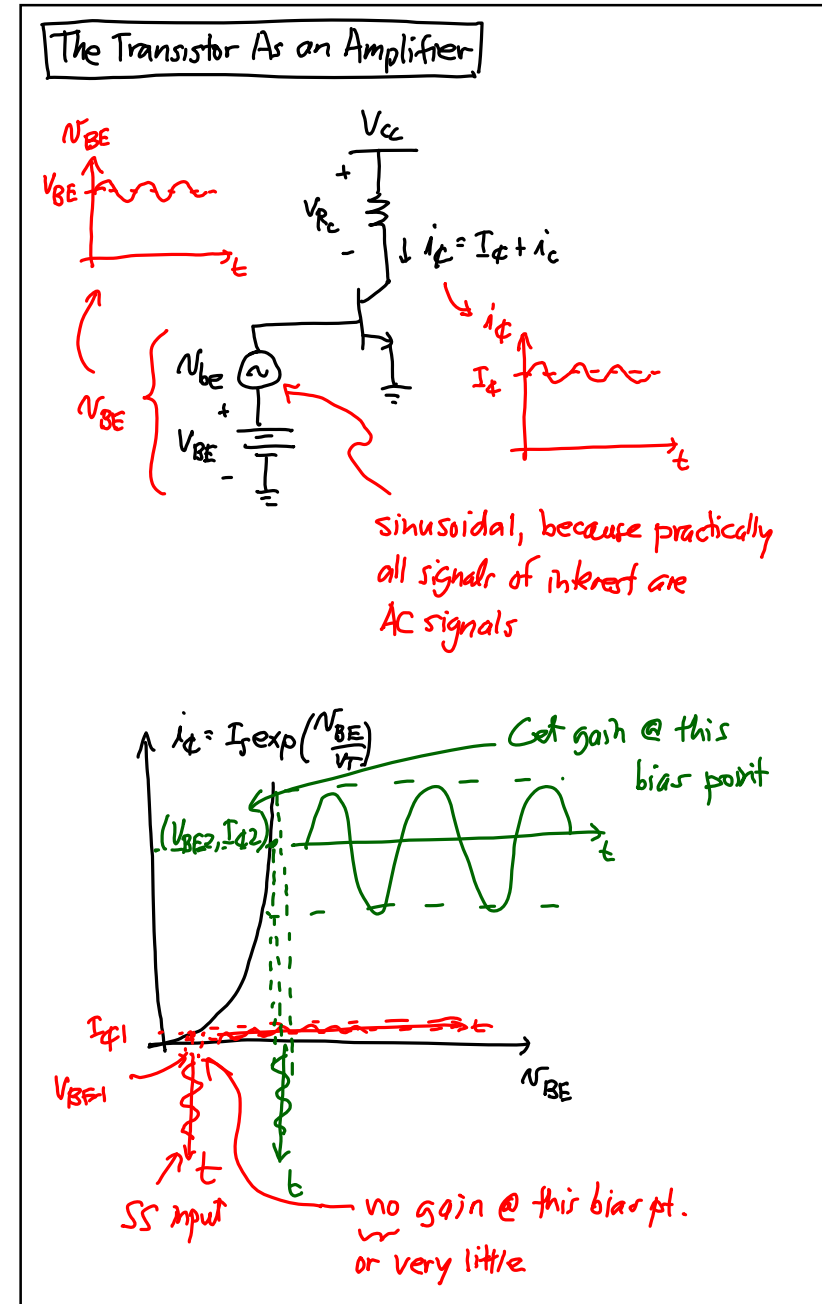 The Transistor As an Amplifier
V_CC
v_BE
V_BE
t
+
V_Rc
-
i_C = I_C + i_c
v_be
v_BE
+
V_BE
-
i_C
I_C
t
sinusoidal, because practically
all signals of interest are
AC signals
i_C = I_S exp(v_BE/V_T)
Get gain @ this
bias point
(V_BE2, I_C2)
t
I_C1
t
v_BE
V_BE1
t
t
SS input
no gain @ this bias pt.
or very little